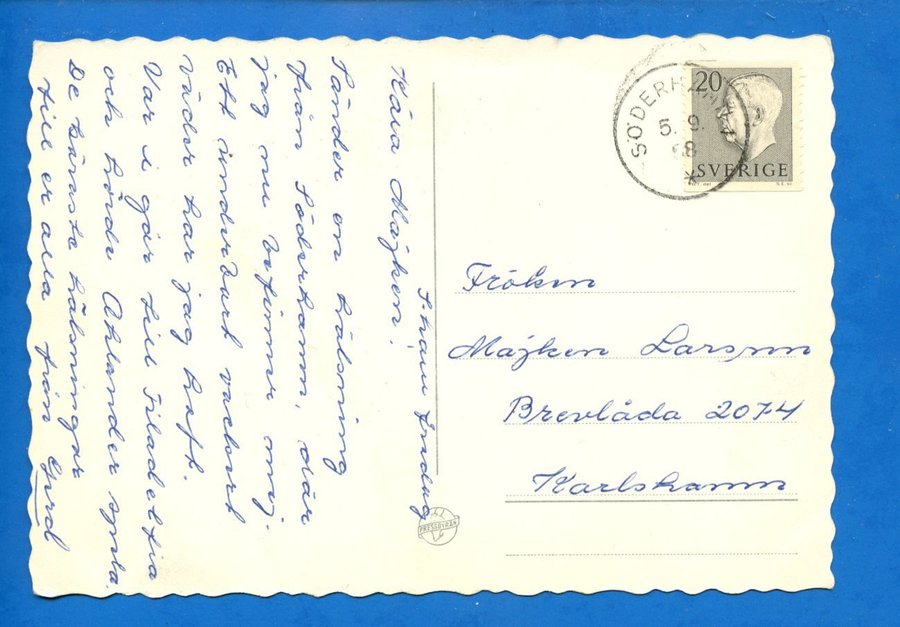 S-hamn fredag
Kära Majken!
Sänder en hälsning
från Söderhamn, där
jag nu befinner mig.
Ett underbart vackert
väder har jag haft.
Var i går till Filadelfia
och hörde Ahlander spela.
De bäraste hälsningar
till er alla från Gerd
20
SÖDERHAMN
5. 9.
SVERIGE
Fröken
Majken Larsson
Brevlåda 2074
Karlshamn
PRESSBYRÅN